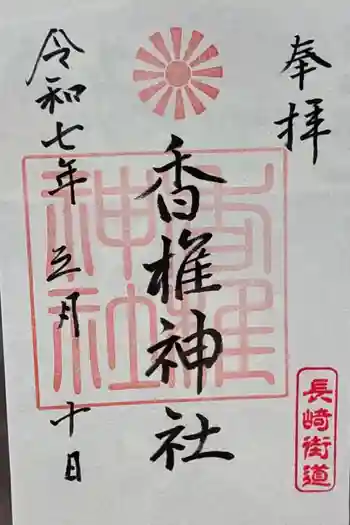 奉拝
香椎神社
令和七年五月十日
香椎神社
長崎街道